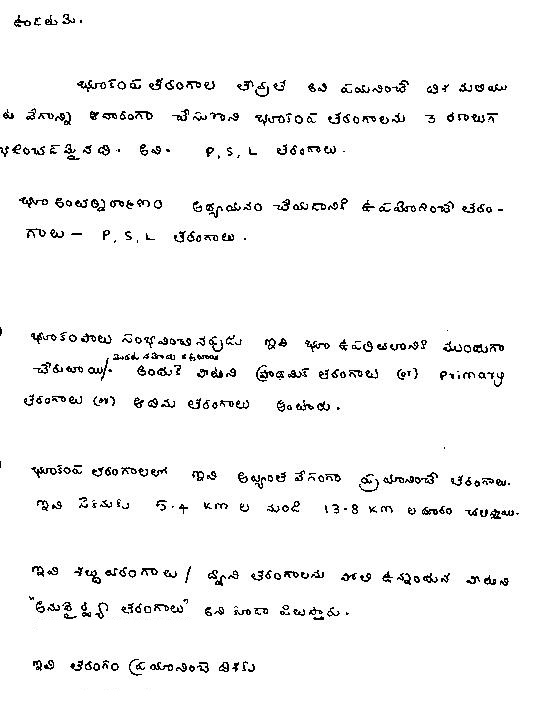 ఉండటమే.
భూకంప తరంగాల తీవ్రత అవి పయనించే దిశ మరియు
వేగాన్ని ఆధారంగా చేసుకొని భూకంప తరంగాలను 3 రకాలుగ
. అవి. P, S, L తరంగాలు.
భూ అంతర్నిర్మాణం అధ్యయనం చేయడానికి ఉపయోగించే తరం -
గాలు - P, S, L తరంగాలు.
భూకంపాలు సంభవించినప్పుడు ఇవి భూ ఉపరితలానికి ముందుగా
చేరుతాయి/. అందుకే వాటిని ప్రాథమిక తరంగాలు (or) Primary
తరంగాలు (or) ఆదిమ తరంగాలు అంటారు.
భూకంప తరంగాలలో ఇవి అత్యంత వేగంగా ప్రయానించే తరంగాలు.
ఇవి సెకనుకు 5.4 km ల నుండి 13.8 km ల దూరం చలిస్తాయి.
ఇవి శబ్దతరంగాలు / ధ్వని తరంగాలను పోలి ఉన్నందున వాటిని
"అనుదైర్ఘ్య తరంగాలు" అని కూడా పిలుస్తారు.
ఇవి తరంగం ప్రయానించే దిశకు